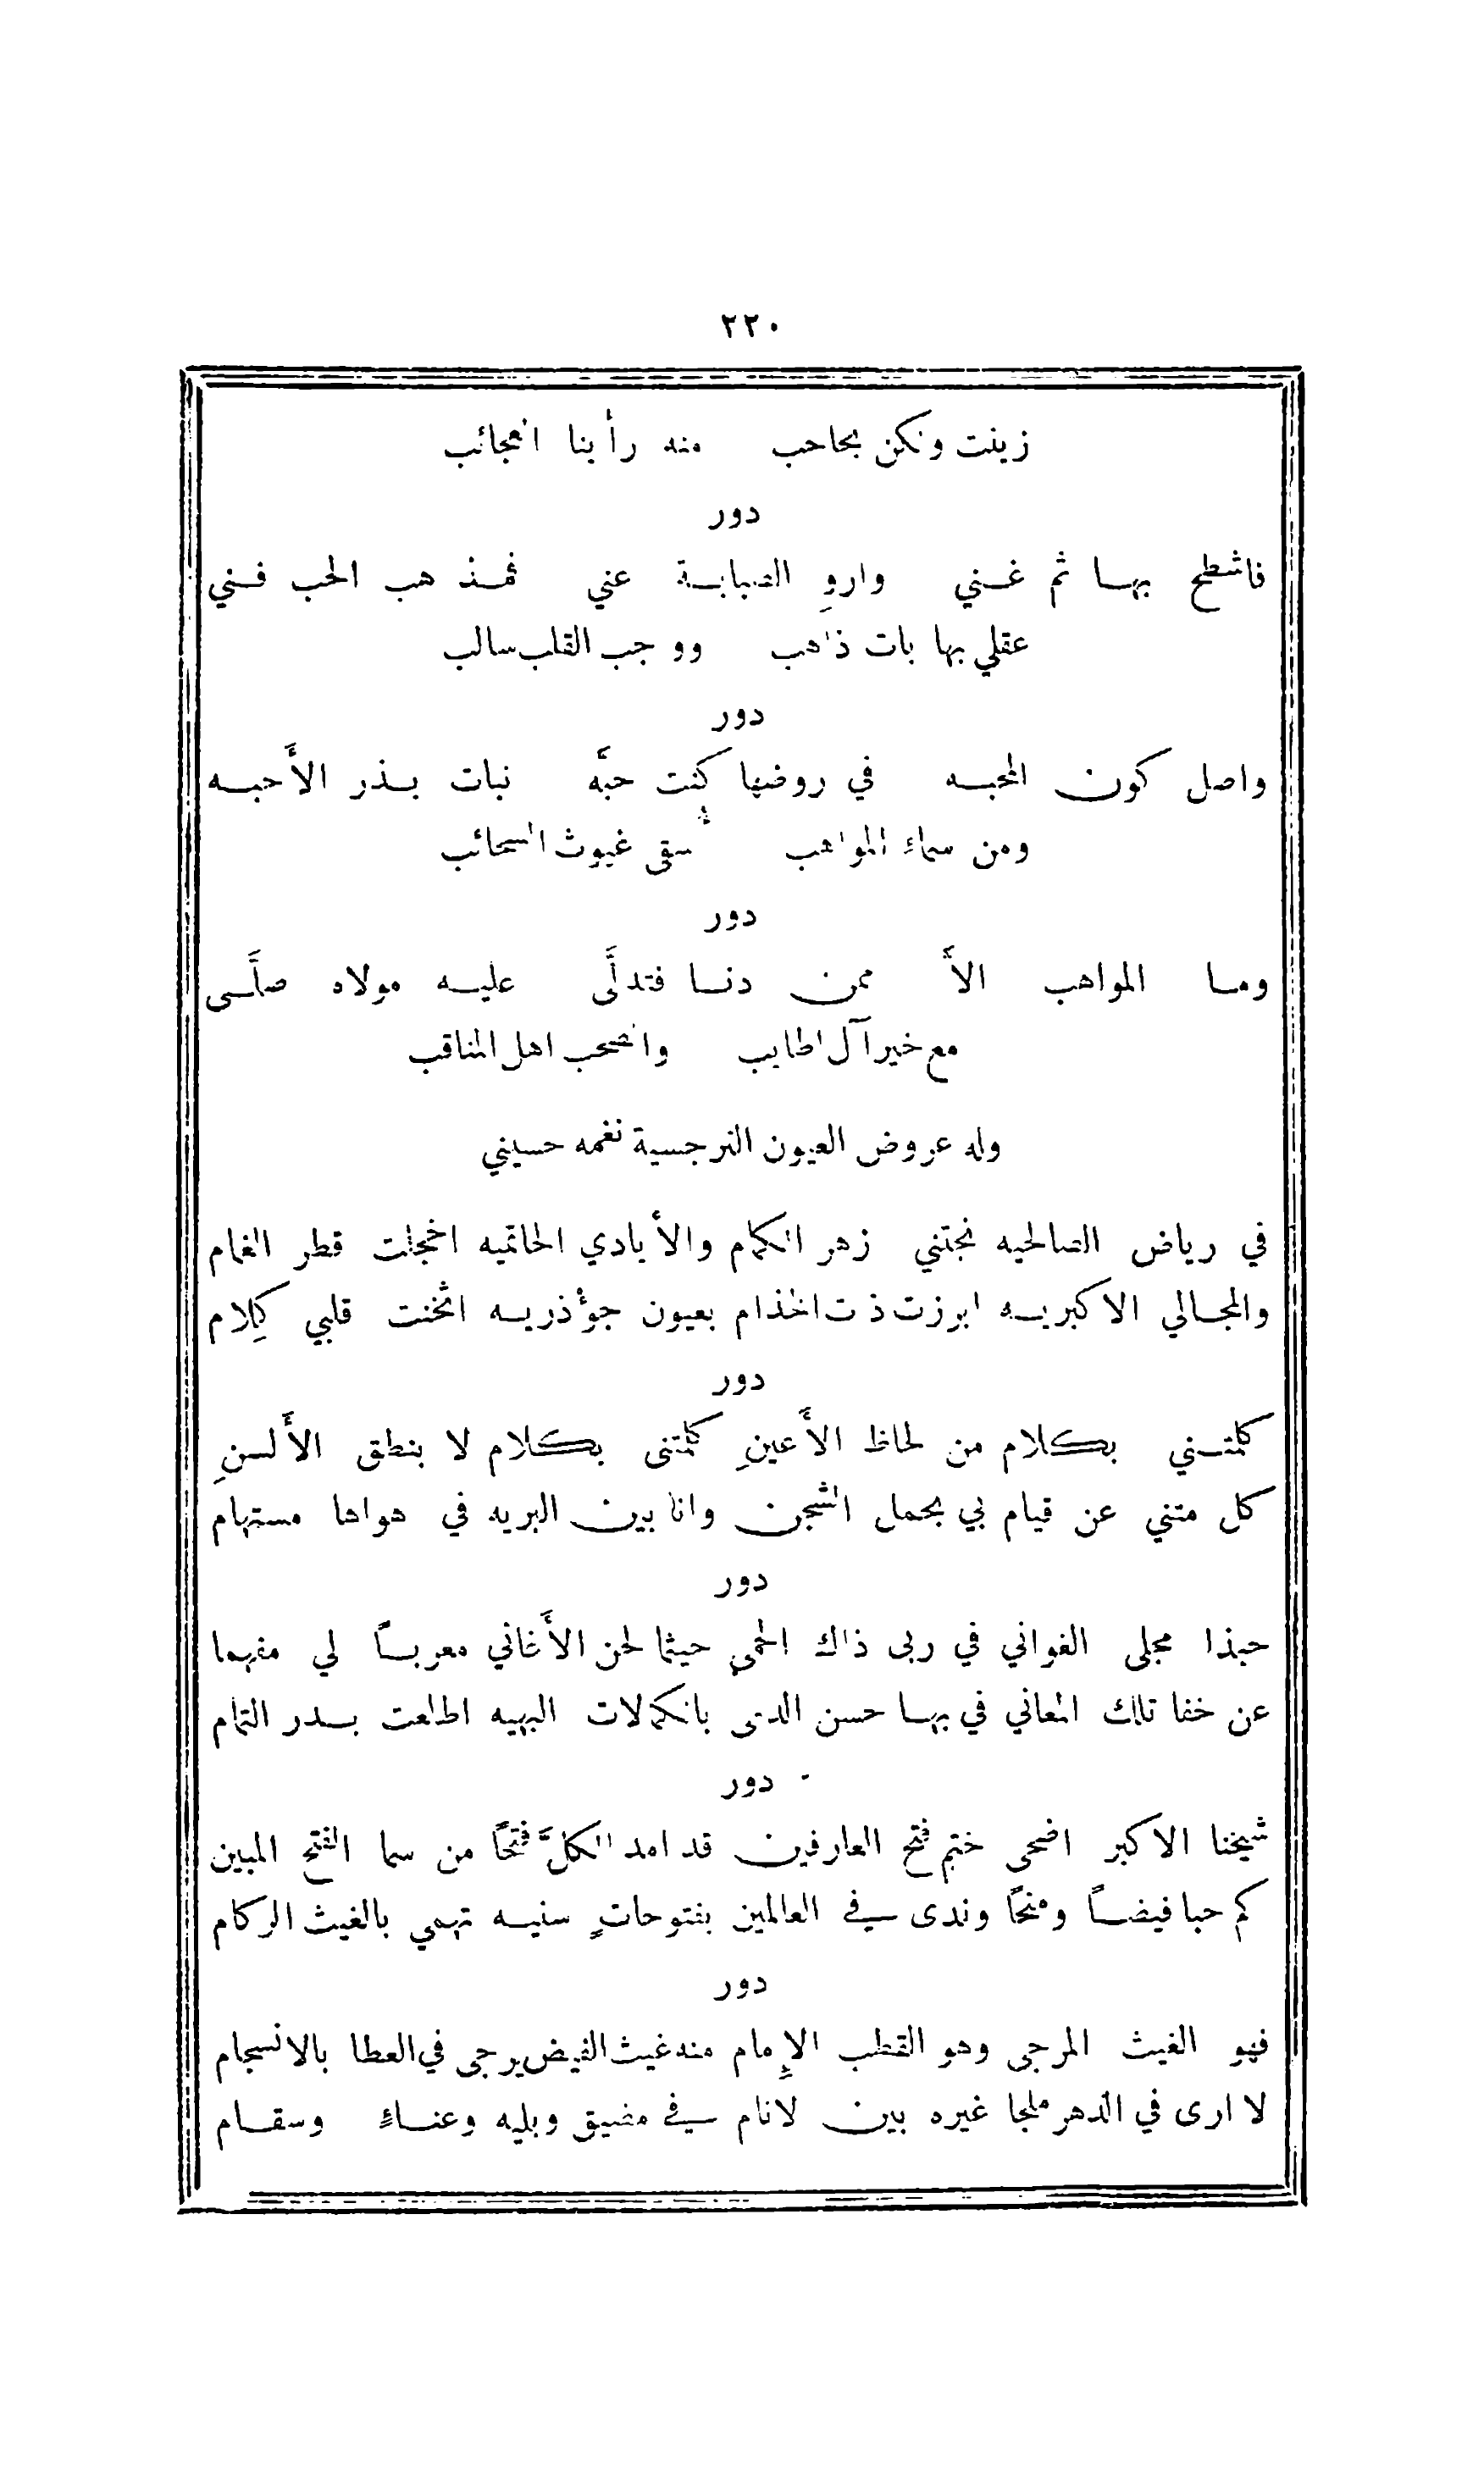 ٢٢٠
زينت ولكن بحاجب منه رأينا العجائب
دور
فاشطح بهـا ثم غـني واروِ الصبابـة عني فمـذهب الحب فـني
عقلي بها بات ذاهب ووجب القلب سالب
دور
واصل كون المحبـه في روضها كنت حبَّه نبات بـذر الأَحبـه
ومن سماءِ المواهب أُسقى غيوث السحائب
دور
ومـا المواهب الاَّ ممن دنـا فتدلَّى عليـه مولاه صلَّـى
مع خير آل اطايب والصحب اهل المناقب
وله عروض العيون النرجسية نغمه حسيني
في رياض الصالحيه نجتني زهر الكمام والأَيادي الحاتميه اخجلت قطر الغمام
والمجـالي الاكبريـه ابرزت ذات الخذام بعيون جوٴذريـه اثخنت قلبي كِلام
دور
كلمتـني بكلام من لحاظ الأَعينِ كلمتنى بكلام لا بنطق الأَلسنِ
كل متني عن قيام بي بحمل الشجن وانا بين البريه في هواها مستهام
دور
حبذا مجلى الغواني في ربى ذاك الحمى حيثما لحن الأَغاني معربـاً لي مفهما
عن خفا تلك المعاني في بهـا حسن الدمى بالكمالات البهيه اطلعت بـدر التمام
دور
شيخنا الاكبر اضحى ختم فتح العارفين قد امد الكلَّ فتحاً من سما الفتح المبين
كم حبا فيضـاً ومنحاً وندى في العالمين بفتوحاتٍ سنيـه تهمي بالغيث الركام
دور
فهو الغيث المرجى وهو القطب الإِمام منه غيث الفيض يرجى في العطا بالانسجام
لا ارى في الدهر ملجا غيره بين الانام في مضيق وبليه وعنـاءٍ وسقـام